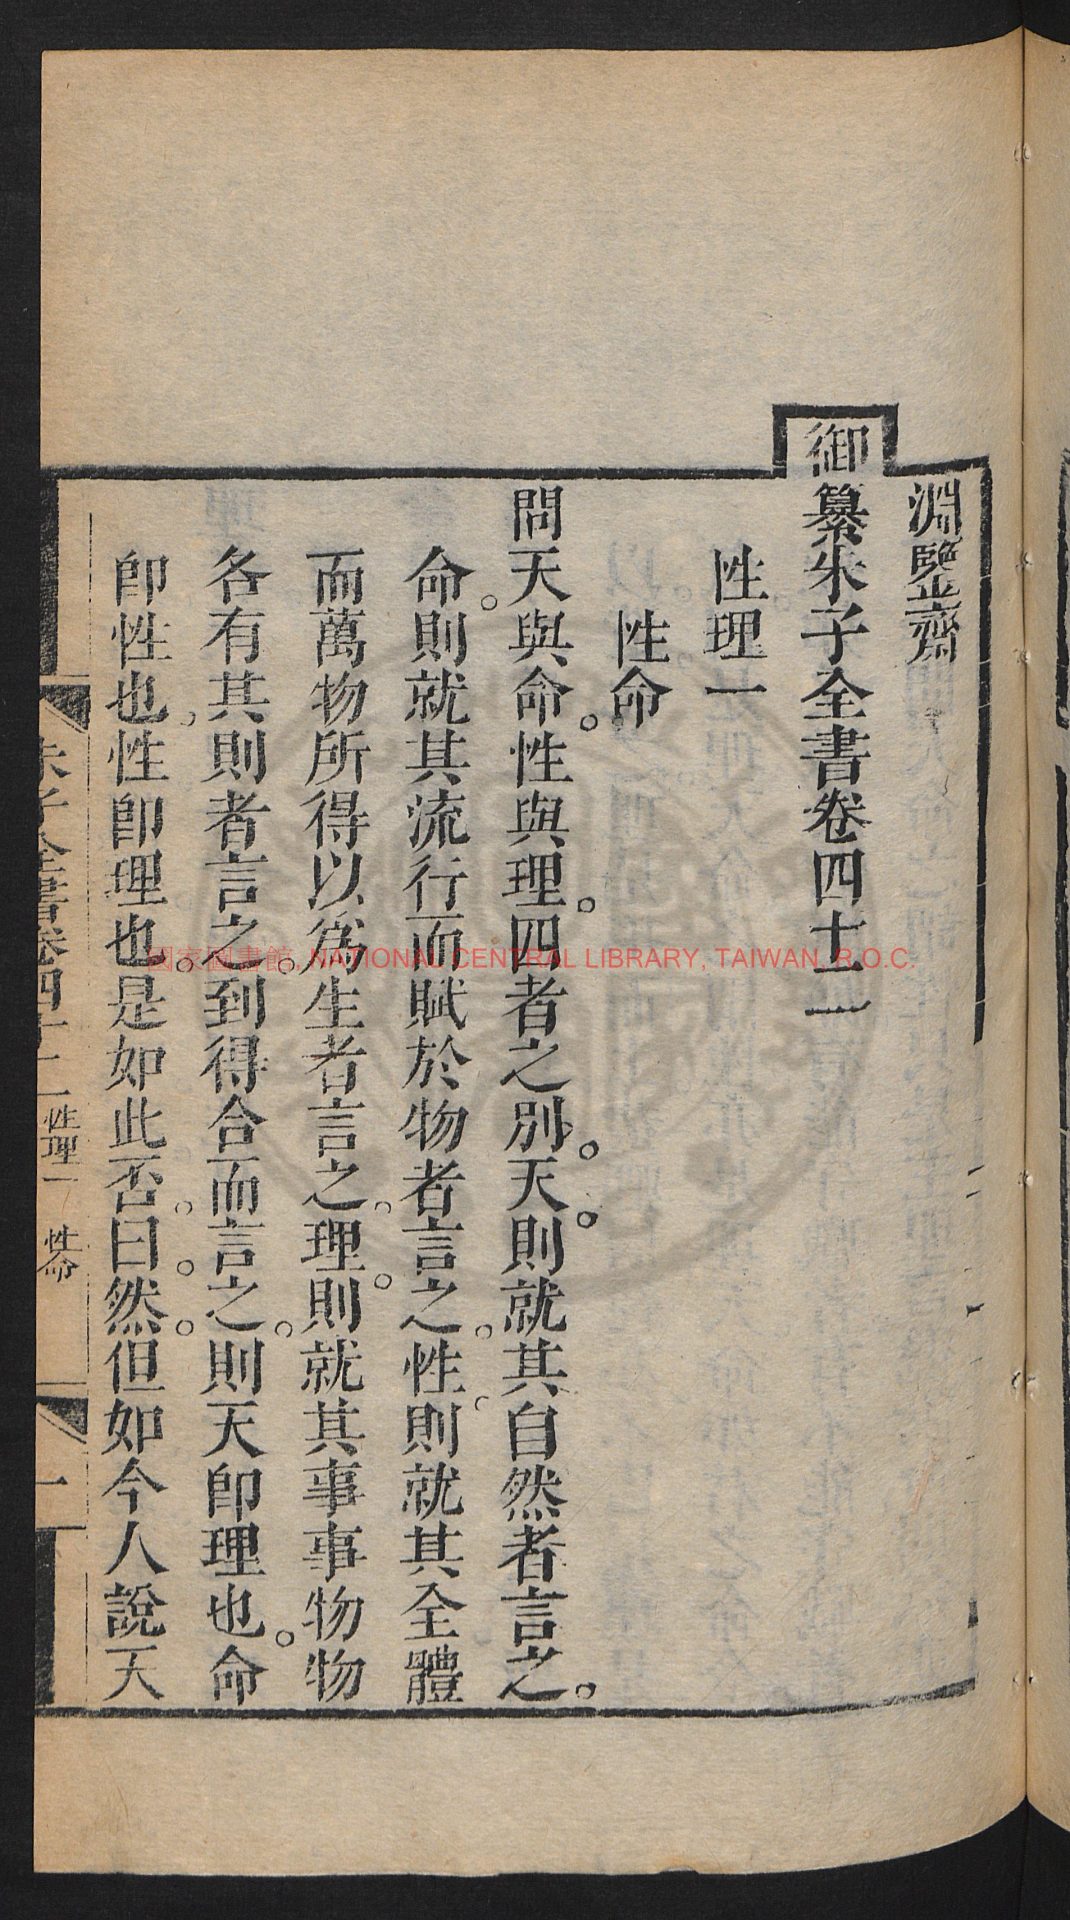 淵鑒齋
御纂朱子全書卷四十二
性理一
性命
問天與命。性與理。四者之別。天。則就其自然者言之。
命。則就其流行而賦於物者言之。性。則就其全體
而萬物所得以爲生者言之。理。則就其事事物物
各有其則者言之。到得合而言之。則天即理也。命
即性也。性即理也。是如此否。曰。然。但如今人說天
朱子全書卷四十二 性理一 性命 一
國家圖書館, NATIONAL CENTRAL LIBRARY, TAIWAN, R.O.C.